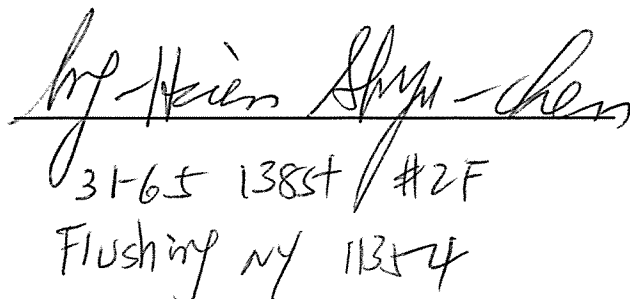 -Hsien Shyu-chen
31-65 138st #2F
Flushing NY 11354